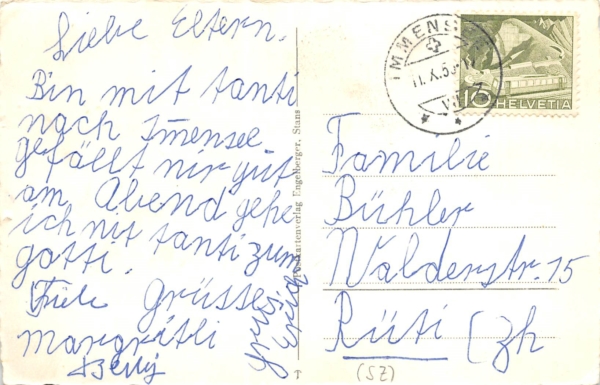 Liebe Eltern.
Bin mit tanti
nach Imensee
gefällt mir gut
am Abend gehe
ich mit tanti zum
gotti.
Fiele Grüsse
Margrätli
Gruss
Postkartenverlag Engelberger, Stans
IMMENSEE
11.X.5
10
HELVETIA
Familie
Bühler
Walderstr. 15
Rüti (Zh
(SZ)
T